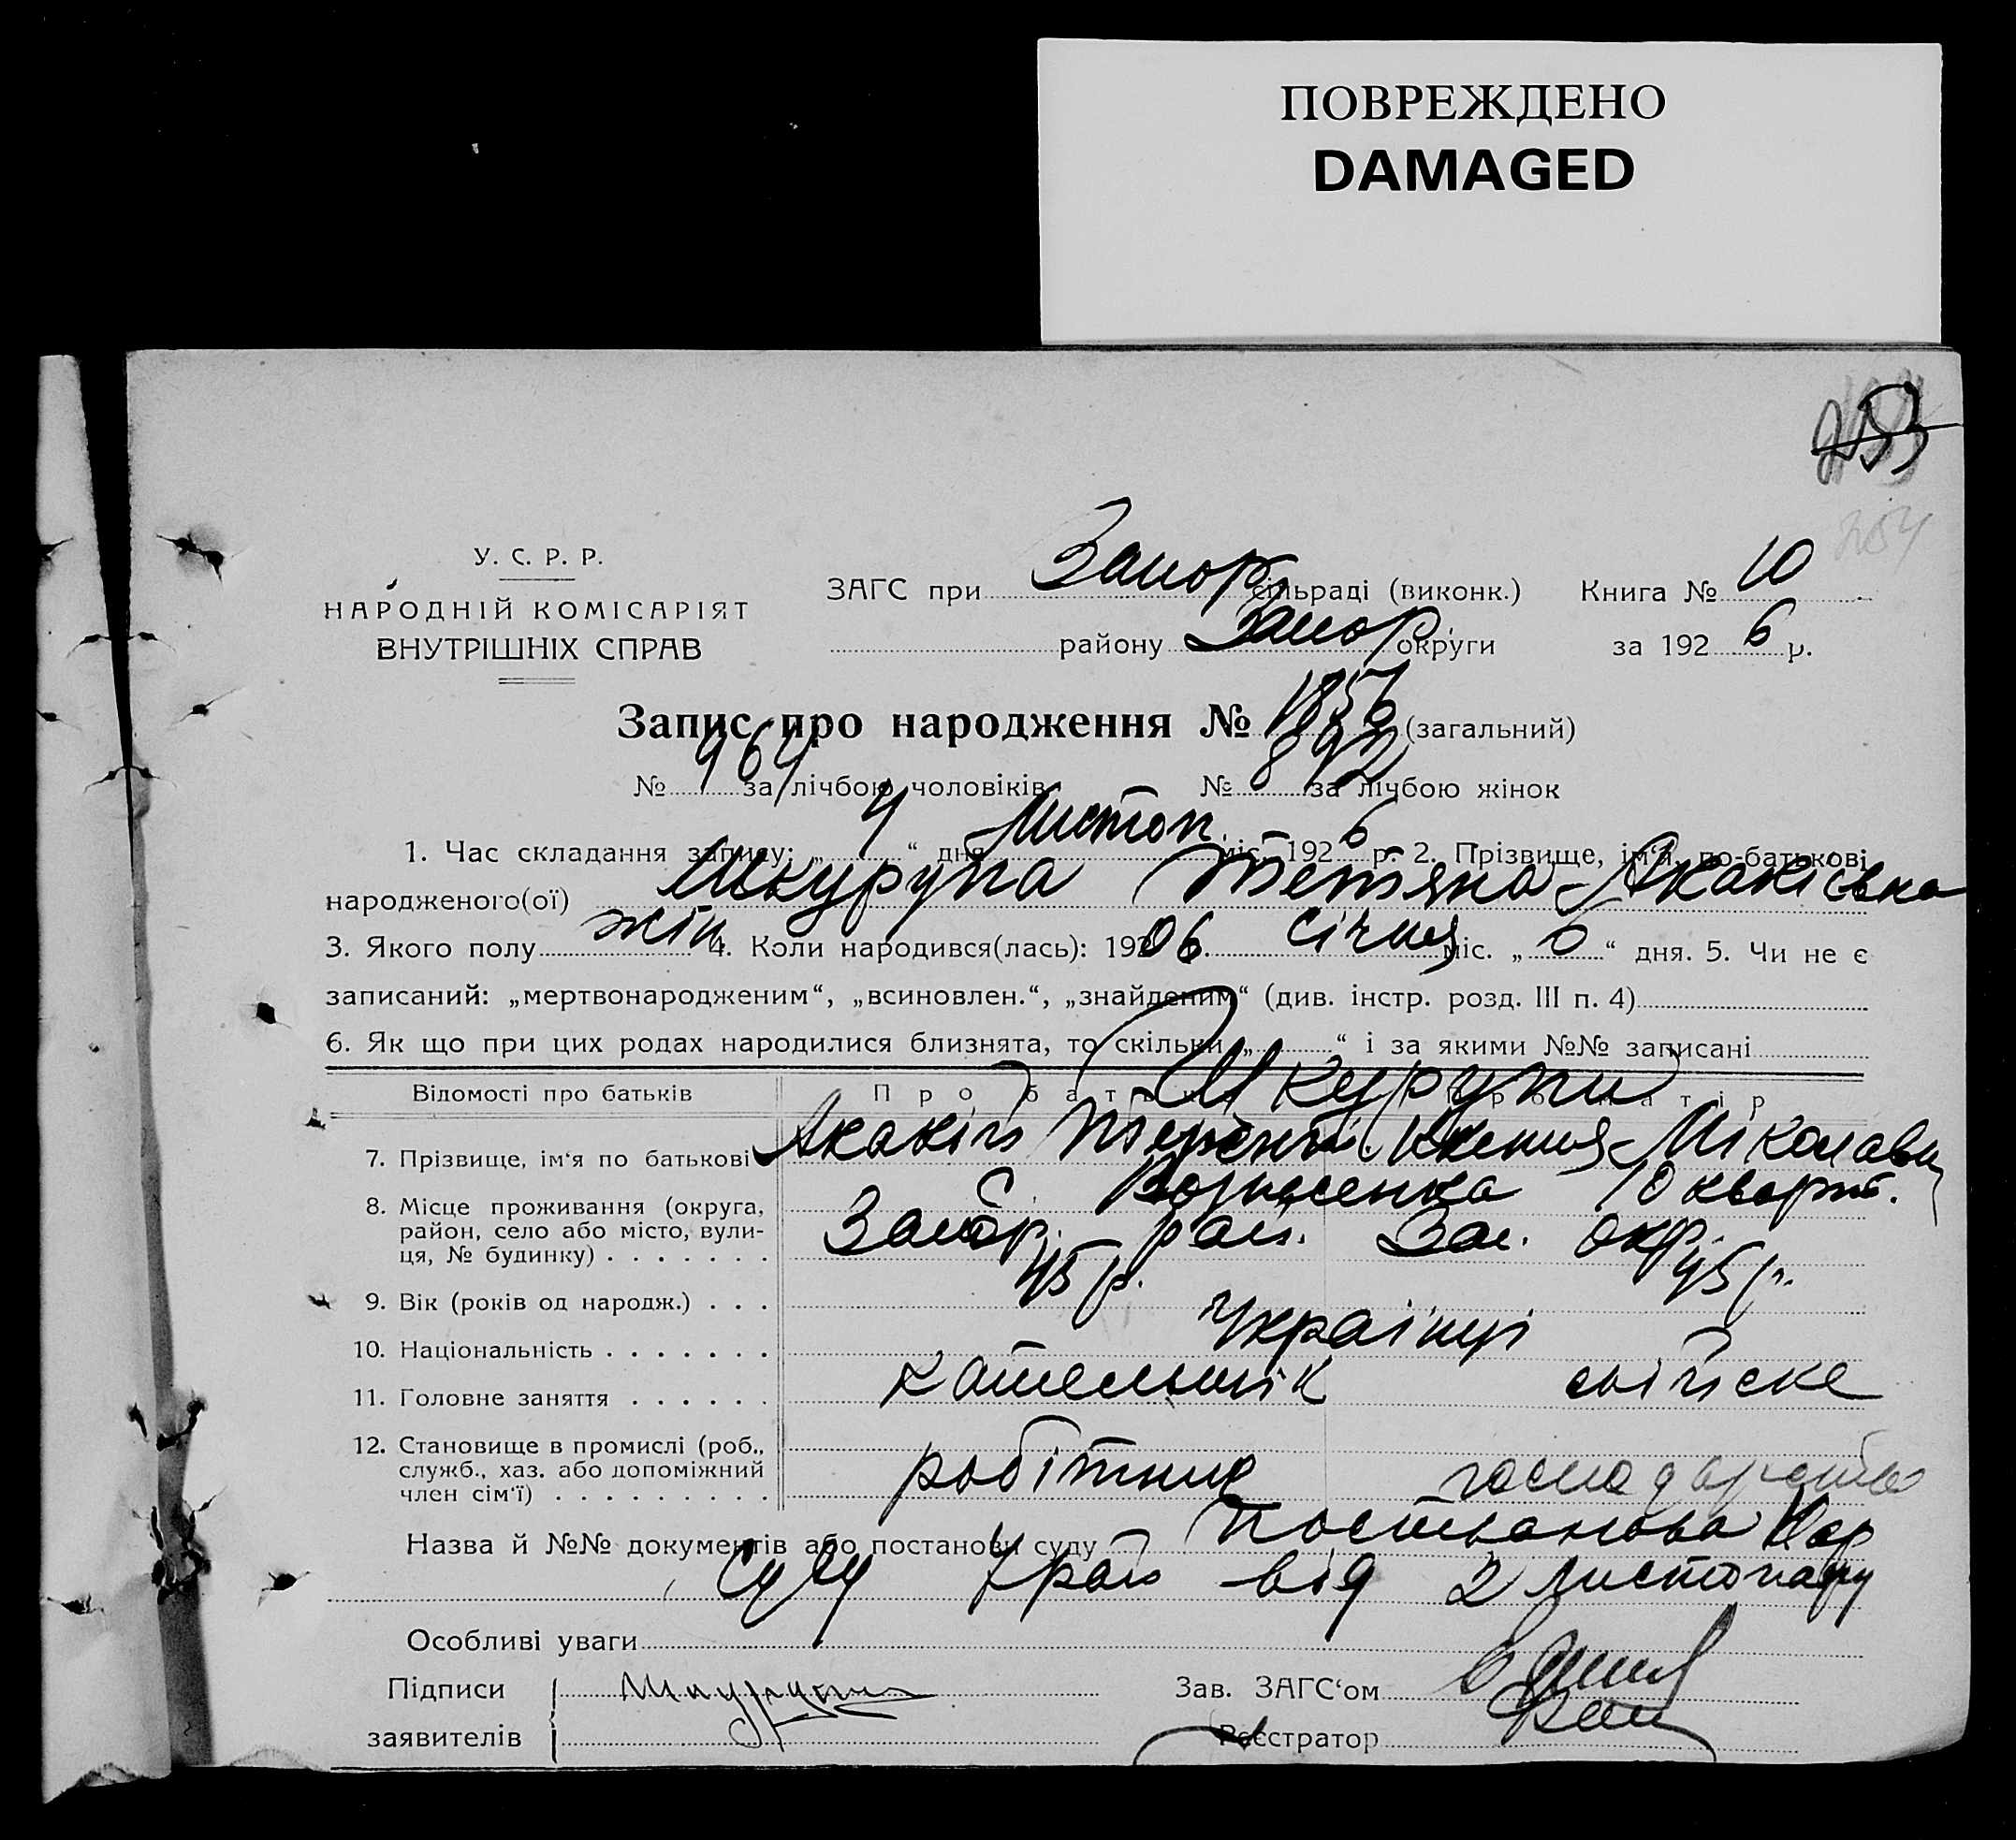 ПОВРЕЖДЕНО
DAMAGED
253
254
У. С. Р. Р.
НАРОДНІЙ КОМІСАРІЯТ
ВНУТРІШНІХ СПРАВ
ЗАГС при Запор. сільраді (виконк.) Книга № 10
району Запор. округи за 1926 р.
Запис про народження № 1856 (загальний)
№ 964 за лічбою чоловіків № 892 за лічбою жінок
1. Час складання запису: „ 4 “ дня Листоп. міс. 1926 р. 2. Прізвище, ім‘я, по-батькові
народженого(ої) Шкурупа Тетяна Акакієвка
3. Якого полу жін. 4. Коли народився(лась): 1906. Січня міс. „ “ дня. 5. Чи не є
записаний: „мертвонародженим“, „всиновлен.“, „знайденим“ (див. інстр. розд. III п. 4)
6. Як що при цих родах народилися близнята, то скільки „ “ і за якими №№ записані
Відомості про батьків Про батька Про матір
Шкурупи
7. Прізвище, ім‘я по батькові Акакій Терент. Ксенія Міколавн
8. Місце проживання (округа, район, село або місто, вули-ця, № будинку) Вознесенка 10 кварт.
Запор. рай. Зап. окр.
9. Вік (років од народж.) 45 р. 45 р.
10. Національність Українці
11. Головне заняття котельшік сільске
12. Становище в промислі (роб., служб., хаз. або допоміжний член сім‘ї) робітник господарство
Назва й №№ документів або постанови суду Постанова Нар
Суду рай від 2 листопаду
Особливі уваги
Підписи Шкурупа Зав. ЗАГС‘ом
заявителів Реєстратор